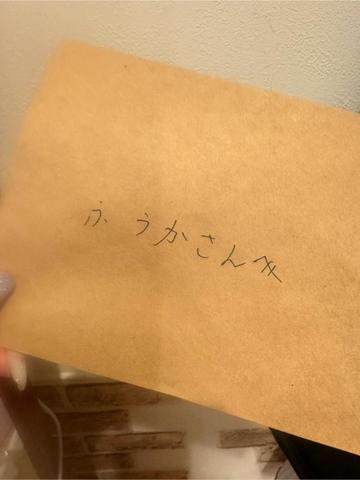 ふうかさんへ